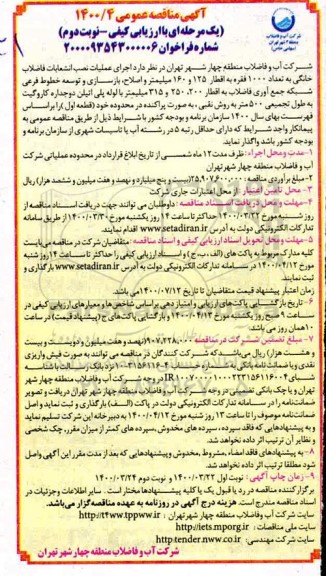 آگهی مناقصه عمومی ۱۴۰۰/۴
(یک مرحله‌ای با ارزیابی کیفی - نوبت دوم)
شماره فراخوان ۲۰۰۰۰۹۳۵۴۳۰۰۰۰۰۶
شرکت آب و فاضلاب منطقه چهار شهر تهران در نظر دارد اجرای عملیات نصب انشعابات فاضلاب
خانگی به تعداد ۱۰۰۰ فقره به اقطار ۱۲۵ و ۱۶۰ میلیمتر و اصلاح، بازسازی و توسعه خطوط فرعی
شبکه جمع آوری فاضلاب به اقطار ۲۰۰، ۲۵۰ و ۳۱۵ میلیمتر با لوله پلی اتیلن دوجداره کاروگیت
به طول تجمیعی ۵۰۰ متر به روش نقبی، به صورت پراکنده در محدوده خود (قطعه اول) را براساس
فهرست بهای سال ۱۴۰۰ سازمان برنامه و بودجه کشور با شرایط ذیل از طریق مناقصه عمومی به
پیمانکار واجد شرایط که دارای حداقل رتبه ۵ در رشته آب یا تاسیسات شهری از سازمان برنامه و
بودجه کشور باشد واگذار نماید.
۱- مدت و محل اجراء: ظرف مدت ۱۲ ماه شمسی از تاریخ ابلاغ قرارداد در محدوده عملیاتی شرکت
آب و فاضلاب منطقه چهار شهر تهران
۲- مبلغ برآوردی مناقصه: ۲۵,۹۰۷,۶۰۰,۰۰۰ (بیست و پنج میلیارد و نهصد و هفت میلیون و ششصد هزار) ریال
۳- محل تامین اعتبار: از محل اعتبارات جاری شرکت
۴- مهلت و محل دریافت اسناد مناقصه: داوطلبان می توانند جهت دریافت اسناد مناقصه از
روز شنبه مورخ ۱۴۰۰/۰۳/۲۲ حداکثر تا ساعت ۱۴ روز یکشنبه مورخ ۱۴۰۰/۰۳/۳۰ از طریق سامانه
تدارکات الکترونیکی دولت به آدرس www.setadiran.ir اقدام نمایند.
۵- مهلت و محل تحویل اسناد ارزیابی کیفی و اسناد مناقصه: متقاضیان شرکت در مناقصه می‌بایست
کلیه مدارک مربوط به پاکت های (الف، ب، ج) و اسناد ارزیابی کیفی را حداکثر تا ساعت ۱۴ روز شنبه
مورخ ۱۴۰۰/۰۴/۱۲ در سامانه تدارکات الکترونیکی دولت به آدرس www.setadiran.ir بارگذاری و
ثبت نمایند.
زمان اعتبار پیشنهاد قیمت متقاضیان تا تاریخ ۱۴۰۰/۰۷/۱۲ می‌باشد.
۶- تاریخ بازگشایی پاکت‌های ارزیابی و امتیاز دهی براساس شاخص ها و معیارهای ارزیابی کیفی در
ساعت ۹ صبح روز یکشنبه مورخ ۱۴۰۰/۰۴/۱۳ و بازگشایی پاکت‌های ج (پیشنهاد قیمت) در ساعت
۱۰ همان روز می باشد.
۷- مبلغ تضمین شرکت در مناقصه: ۹۰۷,۲۲۸,۰۰۰ (نهصد و هفت میلیون و دویست و بیست
و هشت هزار) ریال می‌باشد که شرکت کنندگان در مناقصه می توانند به صورت فیش واریزی
تهران و یا چک بانکی تضمینی در وجه شرکت آب و فاضلاب منطقه چهار شهر تهران دریافت و تصویر
ضمانت‌نامه را در سامانه تدارکات الکترونیکی دولت در پاکت (الف) بارگذاری و ثبت نماید و اصل
ضمانت‌نامه موصوف را تا ساعت ۱۳ روز شنبه مورخ ۱۴۰۰/۰۴/۱۲ به دبیرخانه این شرکت تسلیم نماید
و به پیشنهادهایی که فاقد سپرده، سپرده های مخدوش، سپرده های کمتر از میزان مقرر، چک شخصی
و نظایر آن ترتیب اثر داده نخواهد شد.
۸- به پیشنهادهای فاقد امضاء، مشروط، مخدوش و پیشنهادهایی که بعد از مدت مقرر این آگهی واصل
شود مطلقا ترتیب اثر داده نخواهد شد.
۹- زمان چاپ آگهی: نوبت اول ۱۴۰۰/۰۳/۲۲ و نوبت دوم ۱۴۰۰/۰۳/۲۴
برگزار کننده مناقصه در رد یا قبول یک یا کلیه پیشنهادها مختار است. سایر اطلاعات و جزئیات در
اسناد مناقصه مندرج است. هزینه درج آگهی در روزنامه به عهده مناقصه گزار می‌باشد.
سایت شرکت آب و فاضلاب منطقه چهار شهر تهران: http://t4ww.tppww.ir
سایت ملی مناقصات: http://iets.mporg.ir
سایت شرکت مهندسی: http:tender.nww.co.ir
شرکت آب و فاضلاب منطقه چهار شهر تهران